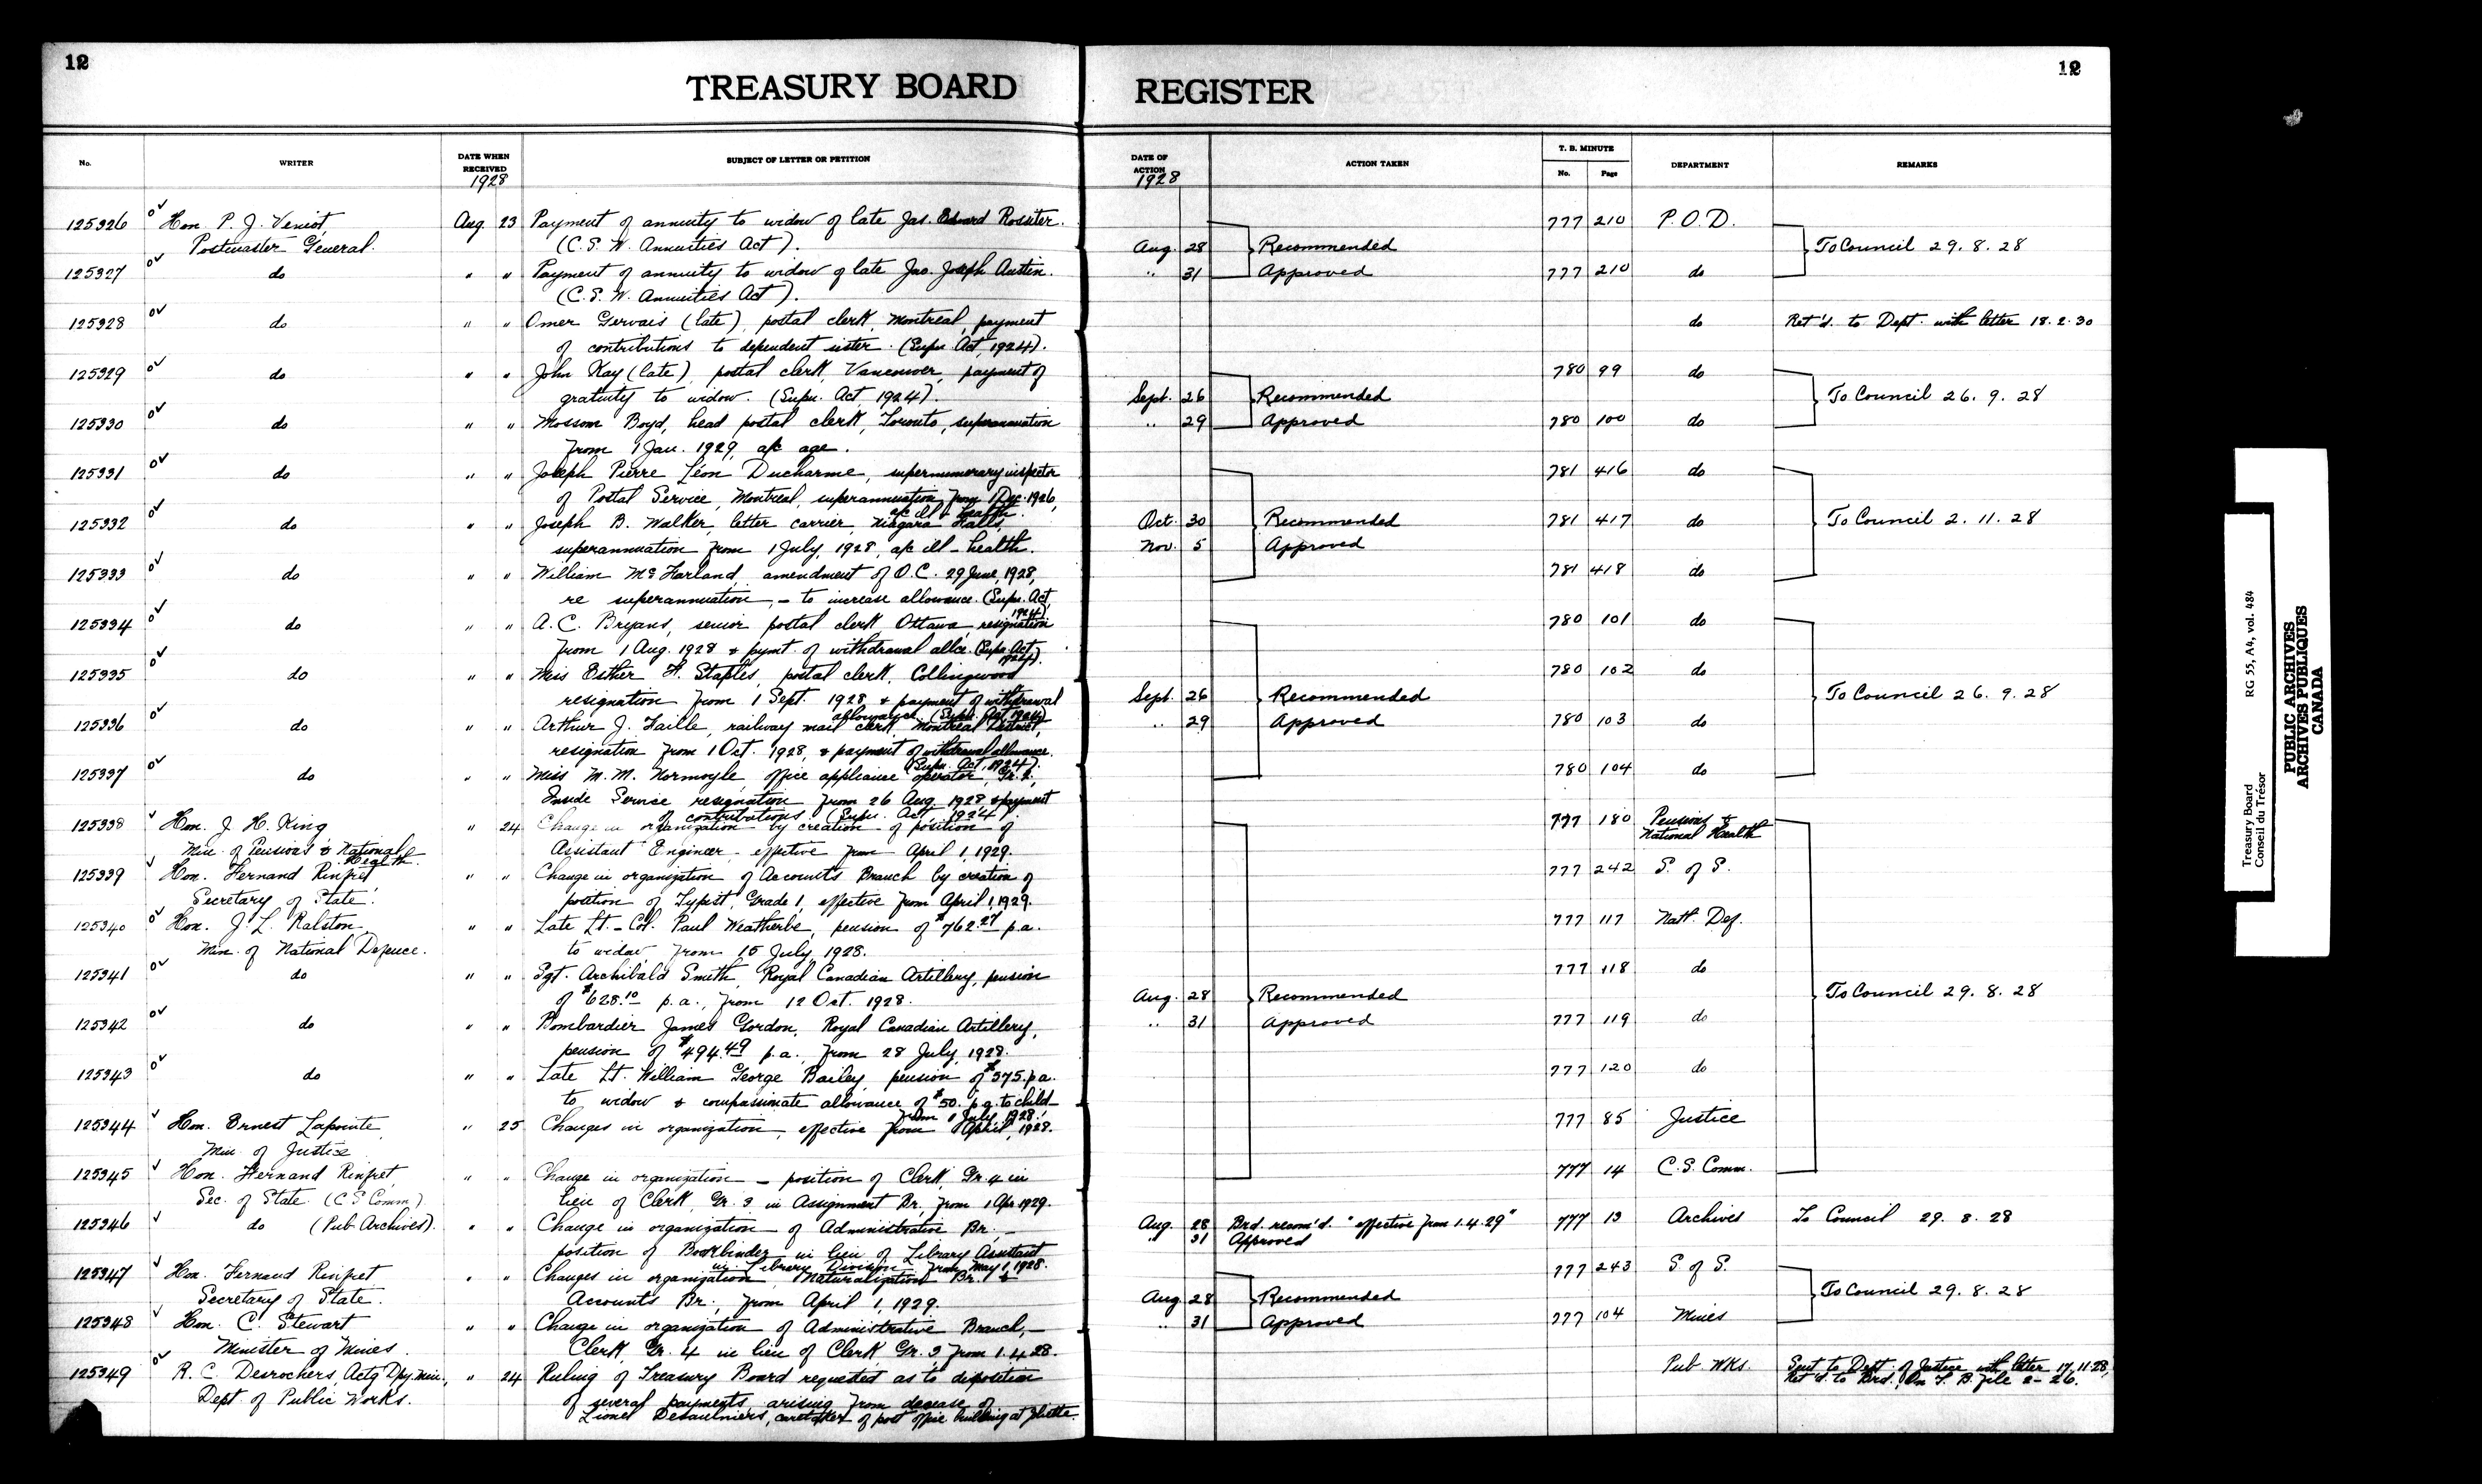 12
12
TREASURY BOARD REGISTER
No. WRITER DATE WHEN RECEIVED SUBJECT OF LETTER OR PETITION DATE OF ACTION ACTION TAKEN T. B. MINUTE DEPARTMENT REMARKS
No. Page
1928 1928
125326 Hon. P. J. Veniot, Aug. 23 Payment of annuity to widow of late Jas. Edward Rossiter. 777 210 P.O.D.
Postmaster General. (C.S.W. Annuities Act). Aug. 28 Recommended To Council 29. 8. 28
125327 do " " Payment of annuity to widow of late Jno. Joseph Austin. " 31 Approved 777 210 do
(C.S.W. Annuities Act).
125328 do " " Omer Gervais (late), postal clerk, Montreal, payment do Ret'd. to Dept. with letter 18.2.30
of contributions to dependent sister. (Supn. Act, 1924).
125329 do " " John Kay (late), postal clerk, Vancouver, payment of 780 99 do
gratuity to widow. (Supn. Act 1924). Sept. 26 Recommended To Council 26. 9. 28
125330 do " " Mossom Boyd, head postal clerk, Toronto, superannuation " 29 Approved 780 100 do
from 1 Jan. 1929, a/c age.
125331 do " " Joseph Pierre Léon Ducharme, supernumerary inspector 781 416 do
of Postal Service, Montreal, superannuation from 1 Dec. 1926,
a/c ill-health.
125332 do " " Joseph B. Walker, letter carrier, Niagara Falls, Oct. 30 Recommended 781 417 do To Council 2. 11. 28
superannuation from 1 July, 1928, a/c ill-health. Nov. 5 Approved
125333 do " " William McFarland, amendment of O.C. 29 June, 1928, 781 418 do
re superannuation, - to increase allowance. (Supn. Act,
1924).
125334 do " " A. C. Bryans, senior postal clerk Ottawa, resignation 780 101 do
from 1 Aug. 1928 & paymt. of withdrawal allce. (Supn. Act,
1924).
125335 do " " Miss Esther H. Staples, postal clerk, Collingwood 780 102 do
resignation from 1 Sept. 1928 & payment of withdrawal Sept. 26 Recommended To Council 26. 9. 28
allowance. (Supn. Act 1924)
125336 do " " Arthur J. Faille, railway mail clerk, Montreal District, " 29 Approved 780 103 do
resignation from 1 Oct. 1928, & payment of withdrawal allowance.
(Supn. Act, 1924).
125337 do " " Miss M. M. Normoyle, office appliance operator, Gr. 2, 780 104 do
Inside Service resignation from 26 Aug. 1928, & payment
of contributions. (Supn. Act, 1924).
125338 Hon. J. H. King " 24 Change in organization by creation of position of 777 180 Pensions & National Health
Min. of Pensions & National Health. Assistant Engineer - effective from April 1, 1929.
125339 Hon. Fernand Rinfret " " Change in organization of Accounts Branch by creation of 777 242 S. of S.
Secretary of State. position of Typist, Grade 1, effective from April 1, 1929.
125340 Hon. J. L. Ralston " " Late Lt.-Col. Paul Weatherbe, pension of $762.27 p.a. 777 117 Natl. Def.
Min. of National Defence. to widow, from 15 July, 1928.
125341 do " " Sgt. Archibald Smith, Royal Canadian Artillery, pension 777 118 do
of $628.10 p.a., from 12 Oct. 1928. Aug. 28 Recommended To Council 29. 8. 28
125342 do " " Bombardier James Gordon, Royal Canadian Artillery, " 31 Approved 777 119 do
pension of $494.49 p.a., from 28 July, 1928.
125343 do " " Late Lt. William George Bailey, pension of $575. p.a. 777 120 do
to widow & compassionate allowance of $50. p.a. to child
from 1 July 1928.
125344 Hon. Ernest Lapointe " 25 Changes in organization, effective from 1 April, 1928. 777 85 Justice
Min. of Justice
125345 Hon. Fernand Rinfret, " " Change in organization - position of Clerk, Gr. 4 in 777 14 C.S. Comm.
Sec. of State (C.S. Comm.) lieu of Clerk, Gr. 3 in Assignment Br., from 1 Apr. 1929.
125346 do (Pub. Archives). " " Change in organization of Administrative Br., - Aug. 28 Brd. recom'd. "effective from 1.4.29" 777 13 Archives To Council 29. 8. 28
" 31 Approved
position of Bookbinder in lieu of Library Assistant
in Library Division from May 1, 1928.
125347 Hon. Fernand Rinfret " " Changes in organization, Naturalization Br. & 777 243 S. of S.
Secretary of State. Accounts Br., from April 1, 1929. Aug. 28 Recommended To Council 29. 8. 28
125348 Hon. C. Stewart " " Change in organization of Administrative Branch, - " 31 Approved 777 104 Mines
Minister of Mines. Clerk, Gr. 4 in lieu of Clerk, Gr. 3 from 1.4.28.
125349 R. C. Desrochers, Actg Dpy. Min., " 24 Ruling of Treasury Board requested as to disposition Pub. Wks. Sent to Dept. of Justice with letter 17.11.28,
Dept. of Public Works. of several payments, arising from decease of Ret'd. to Brd. On T. B. file 2-26.
Lionel Desaulniers, caretaker of post office building at
Treasury Board RG 55, A4, vol. 484
Conseil du Trésor
PUBLIC ARCHIVES
ARCHIVES PUBLIQUES
CANADA